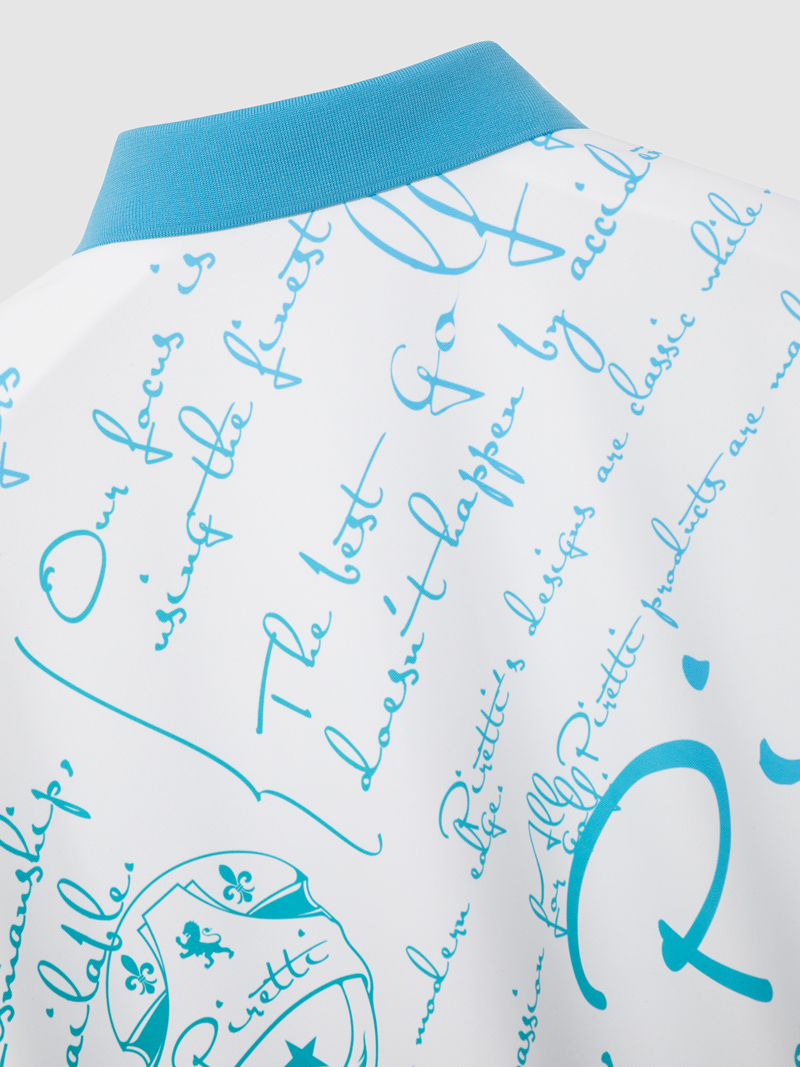 Our focus is
using the finest
The best
doesn't happen by accid
Go
Piretti's designs are classic while
modern edge.
All Piretti products are ma
for golf.
smanship,
ailable.
Piretti